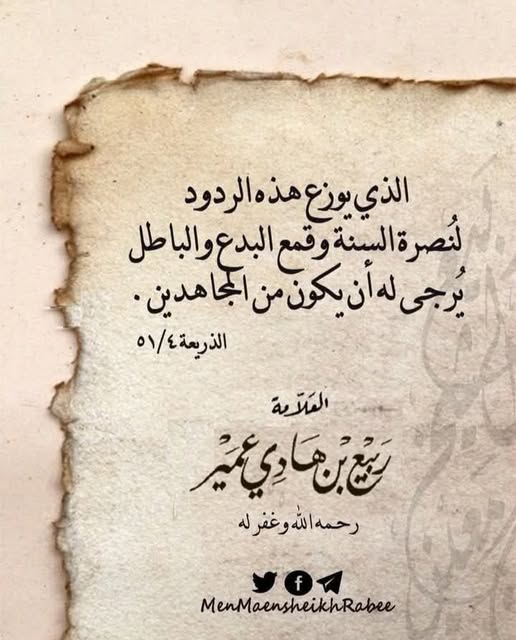 الذي يوزع هذه الردود
لنُصرة السنة وقمع البدع والباطل
يُرجى له أن يكون من المجاهدين .
الذريعة ٥١/٤
العَلّامة
رَبِيْع بْن هَادِي عُمَيْر
رحمه الله وغفر له
MenMaensheikhRabee